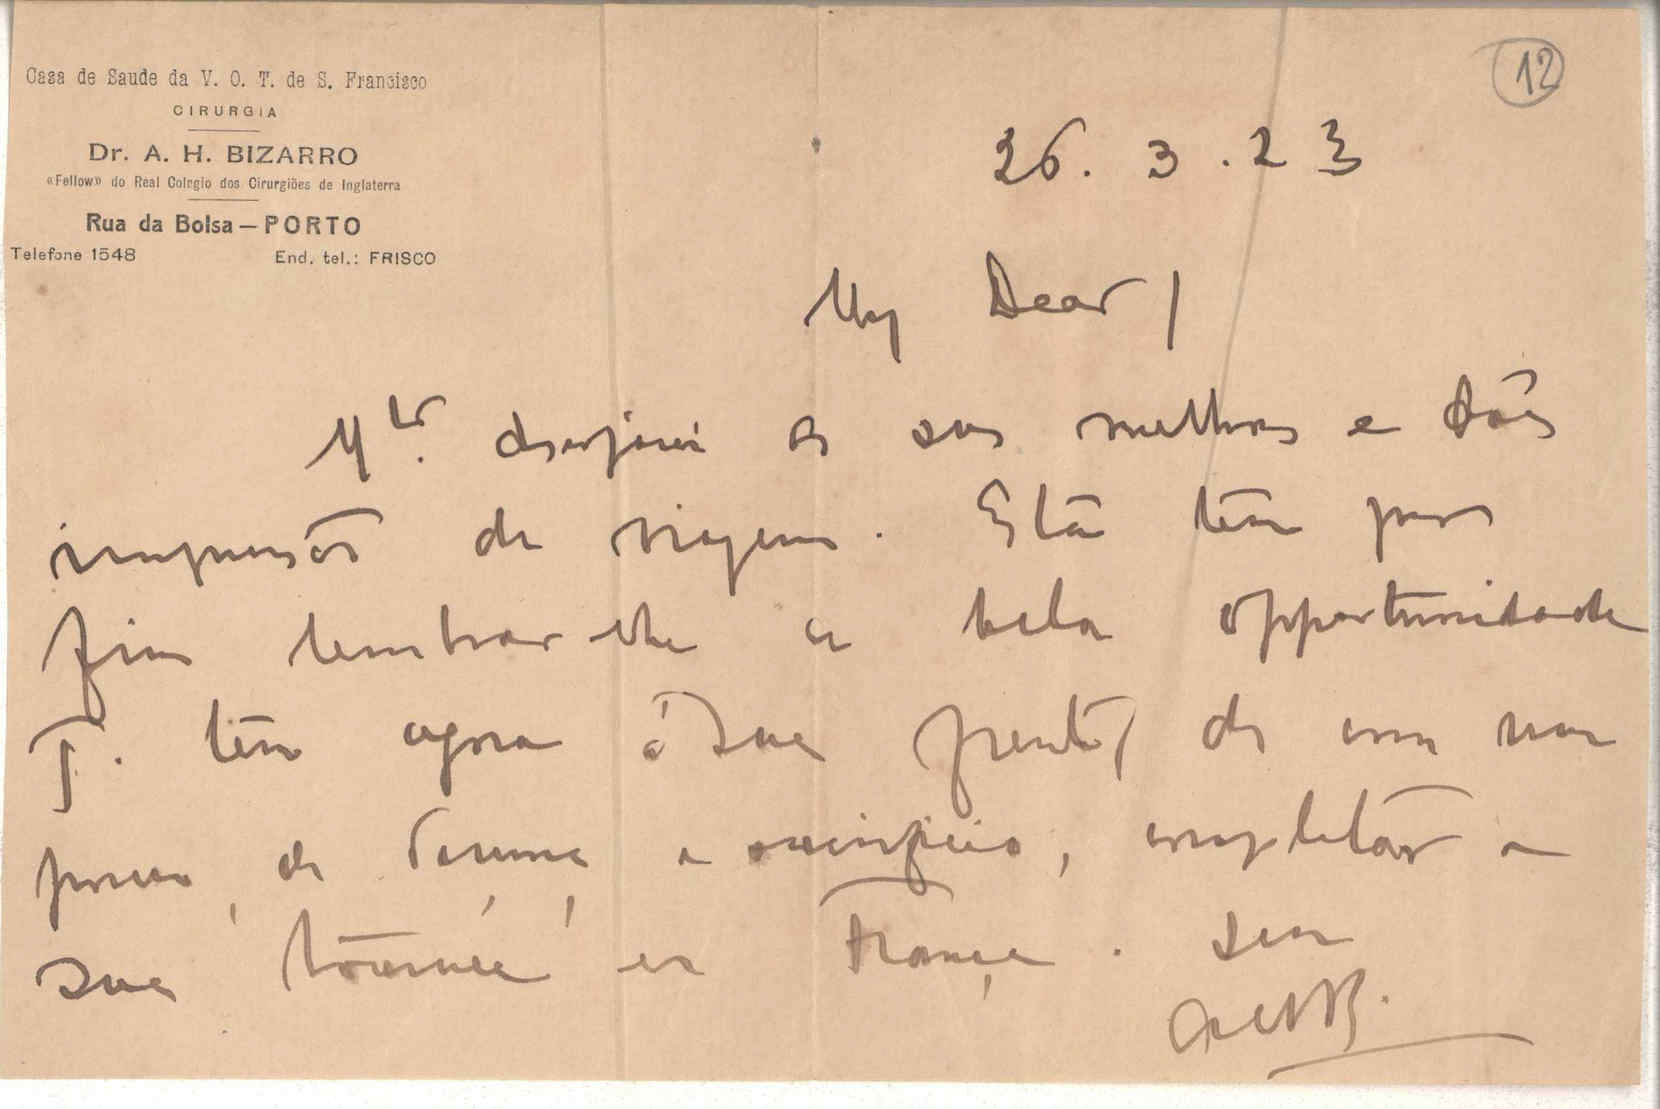 12
Casa de Saude da V. O. T. de S. Francisco
CIRURGIA
Dr. A. H. BIZARRO
«Fellow» do Real Colegio dos Cirurgiões de Inglaterra
Rua da Bolsa — PORTO
Telefone 1548 End. tel.: FRISCO
26. 3. 23
My Dear /
Mto. desejarei as suas melhoras e bôas
impressões de viagem. Esta tem por
fim lembrar-lhe a bela opportunidade
q. tem agora á sua frente, de com um
pouco de
sacrificio, completar a
sua tournée en França. Seu
AHB.